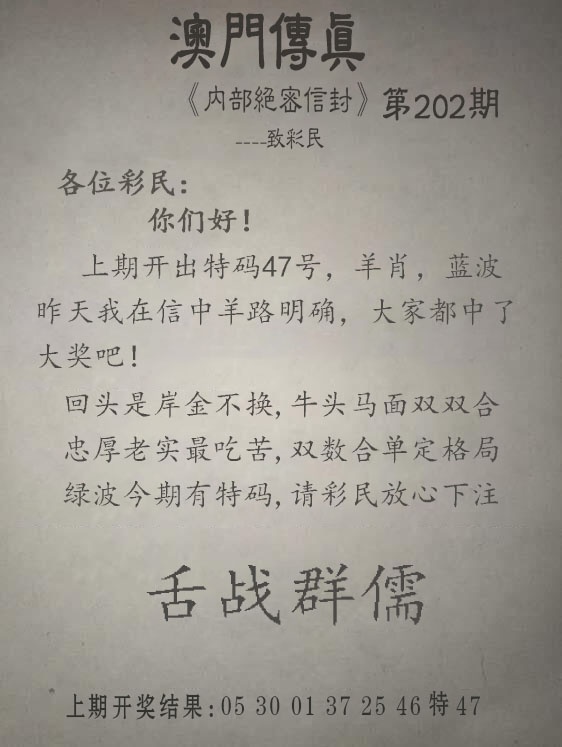 澳門傳真
《内部絕密信封》第202期
----致彩民
各位彩民:
你们好!
上期开出特码47号，羊肖，蓝波
昨天我在信中羊路明确，大家都中了
大奖吧!
回头是岸金不换,牛头马面双双合
忠厚老实最吃苦,双数合单定格局
绿波今期有特码,请彩民放心下注
舌战群儒
上期开奖结果:05 30 01 37 25 46特47